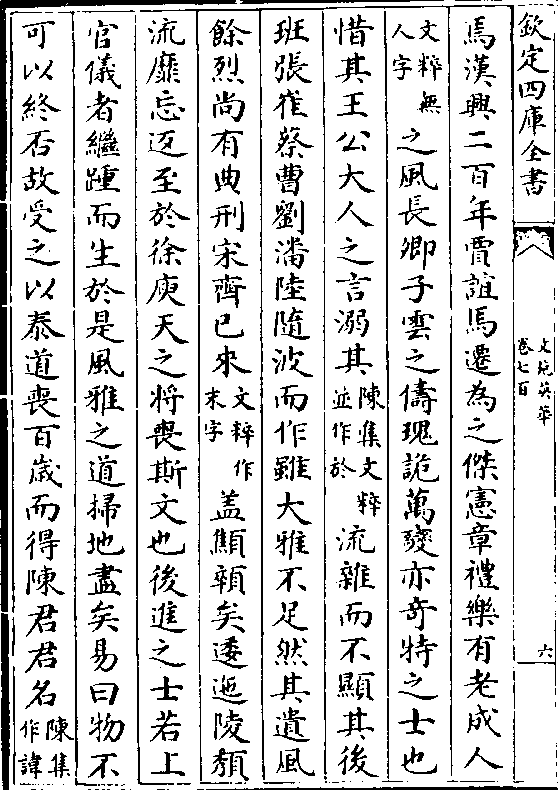 欽定四庫全書
文苑英華
卷七百
六
焉漢興二百年賈誼馬遷為之傑憲章禮樂有老成人
文粹無
人字
之風長卿子雲之儔瑰詭萬變亦奇特之士也
惜其王公大人之言溺其
陳集文粹
並作於
流雜而不顯其後
班張崔蔡曹劉潘陸隨波而作雖大雅不足然其遺風
餘烈尚有典刑宋齊已來
文粹作
末字
盖顦顇矣逶迤陵頽
流靡忘返至於徐庾天之将喪斯文也後進之士若上
官儀者繼踵而生於是風雅之道掃地盡矣易曰物不
可以終否故受之以泰道喪百歲而得陳君君名
陳集
作諱